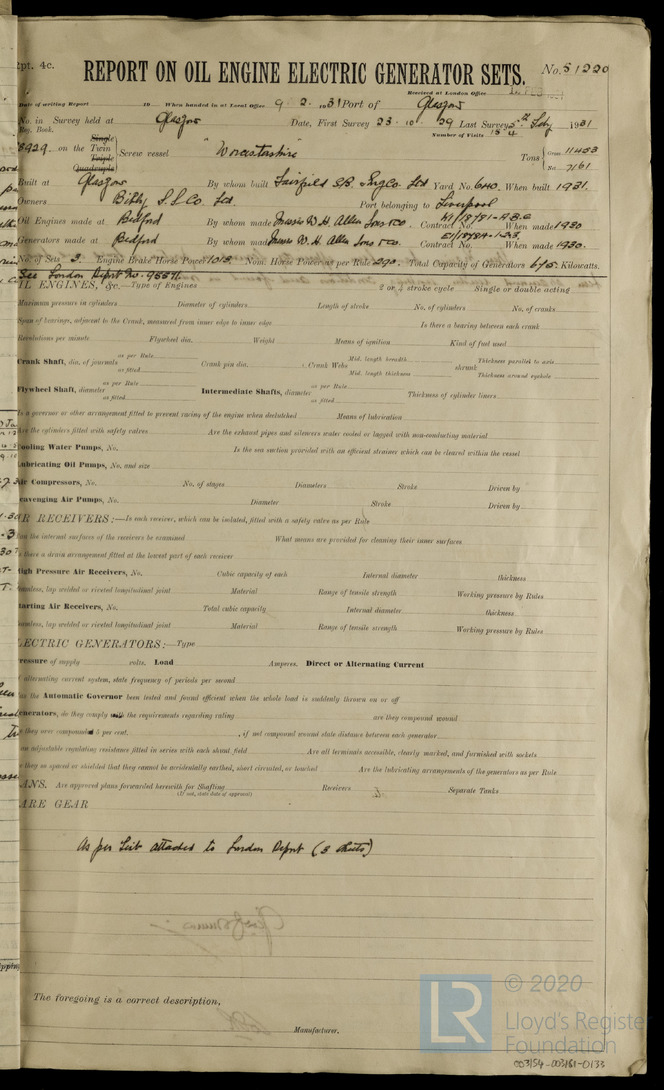 Rpt. 4c.
REPORT ON OIL ENGINE ELECTRIC GENERATOR SETS.
No. 51220
Received at London Office
Date of writing Report 19 When handed in at Local Office 9. 2. 1931 Port of Glasgow
No. in Survey held at Glasgow Date, First Survey 23. 10. 29 Last Survey 5th Feby 1931
Reg. Book. Number of Visits
8929 on the Single Twin Triple Quadruple Screw vessel "Worcestershire" Tons Gross 11403 Net 7161
Built at Glasgow By whom built Fairfield S.B. & Eng Co. Ltd Yard No. 640. When built 1931.
Owners Bibby S.S. Co Ltd Port belonging to Liverpool
Oil Engines made at Bedford By whom made Messrs W. H. Allen Sons & Co. Contract No. K1/18781-A.B.C When made 1930
Generators made at Bedford By whom made Messrs W. H. Allen Sons & Co. Contract No. When made 1930.
No. of Sets 3. Engine Brake Horse Power 1013 Nom. Horse Power as per Rule 290. Total Capacity of Generators 675. Kilowatts.
See London Report No.
OIL ENGINES, &c.—Type of Engines 2 or 4 stroke cycle Single or double acting
Maximum pressure in cylinders Diameter of cylinders Length of stroke No. of cylinders No. of cranks
Span of bearings, adjacent to the Crank, measured from inner edge to inner edge Is there a bearing between each crank
Revolutions per minute Flywheel dia. Weight Means of ignition Kind of fuel used
Crank Shaft, dia. of journals as per Rule as fitted Crank pin dia. Crank Webs Mid. length breadth Mid. length thickness shrunk Thickness parallel to axis Thickness around eyehole
Flywheel Shaft, diameter as per Rule as fitted Intermediate Shafts, diameter as per Rule as fitted Thickness of cylinder liners
Is a governor or other arrangement fitted to prevent racing of the engine when declutched Means of lubrication
Are the cylinders fitted with safety valves Are the exhaust pipes and silencers water cooled or lagged with non-conducting material
Cooling Water Pumps, No. Is the sea suction provided with an efficient strainer which can be cleared within the vessel
Lubricating Oil Pumps, No. and size
Air Compressors, No. No. of stages Diameters Stroke Driven by
Scavenging Air Pumps, No. Diameter Stroke Driven by
AIR RECEIVERS:—Is each receiver, which can be isolated, fitted with a safety valve as per Rule
Can the internal surfaces of the receivers be examined What means are provided for cleaning their inner surfaces
Is there a drain arrangement fitted at the lowest part of each receiver
High Pressure Air Receivers, No. Cubic capacity of each Internal diameter thickness
Seamless, lap welded or riveted longitudinal joint Material Range of tensile strength Working pressure by Rules
Starting Air Receivers, No. Total cubic capacity Internal diameter thickness
Seamless, lap welded or riveted longitudinal joint Material Range of tensile strength Working pressure by Rules
ELECTRIC GENERATORS:—Type
Pressure of supply volts. Load Amperes. Direct or Alternating Current
If alternating current system, state frequency of periods per second
Has the Automatic Governor been tested and found efficient when the whole load is suddenly thrown on or off
Generators, do they comply with the requirements regarding rating are they compound wound
are they over compounded 5 per cent. , if not compound wound state distance between each generator
Is an adjustable regulating resistance fitted in series with each shunt field Are all terminals accessible, clearly marked, and furnished with sockets
Are they so spaced or shielded that they cannot be accidentally earthed, short circuited, or touched Are the lubricating arrangements of the generators as per Rule
PLANS. Are approved plans forwarded herewith for Shafting Receivers Separate Tanks
(If not, state date of approval)
SPARE GEAR
As per List attached to London Report (3 sheets)
The foregoing is a correct description,
Manufacturer.
LR
© 2020
Lloyd's Register
Foundation
003154-003161-0133